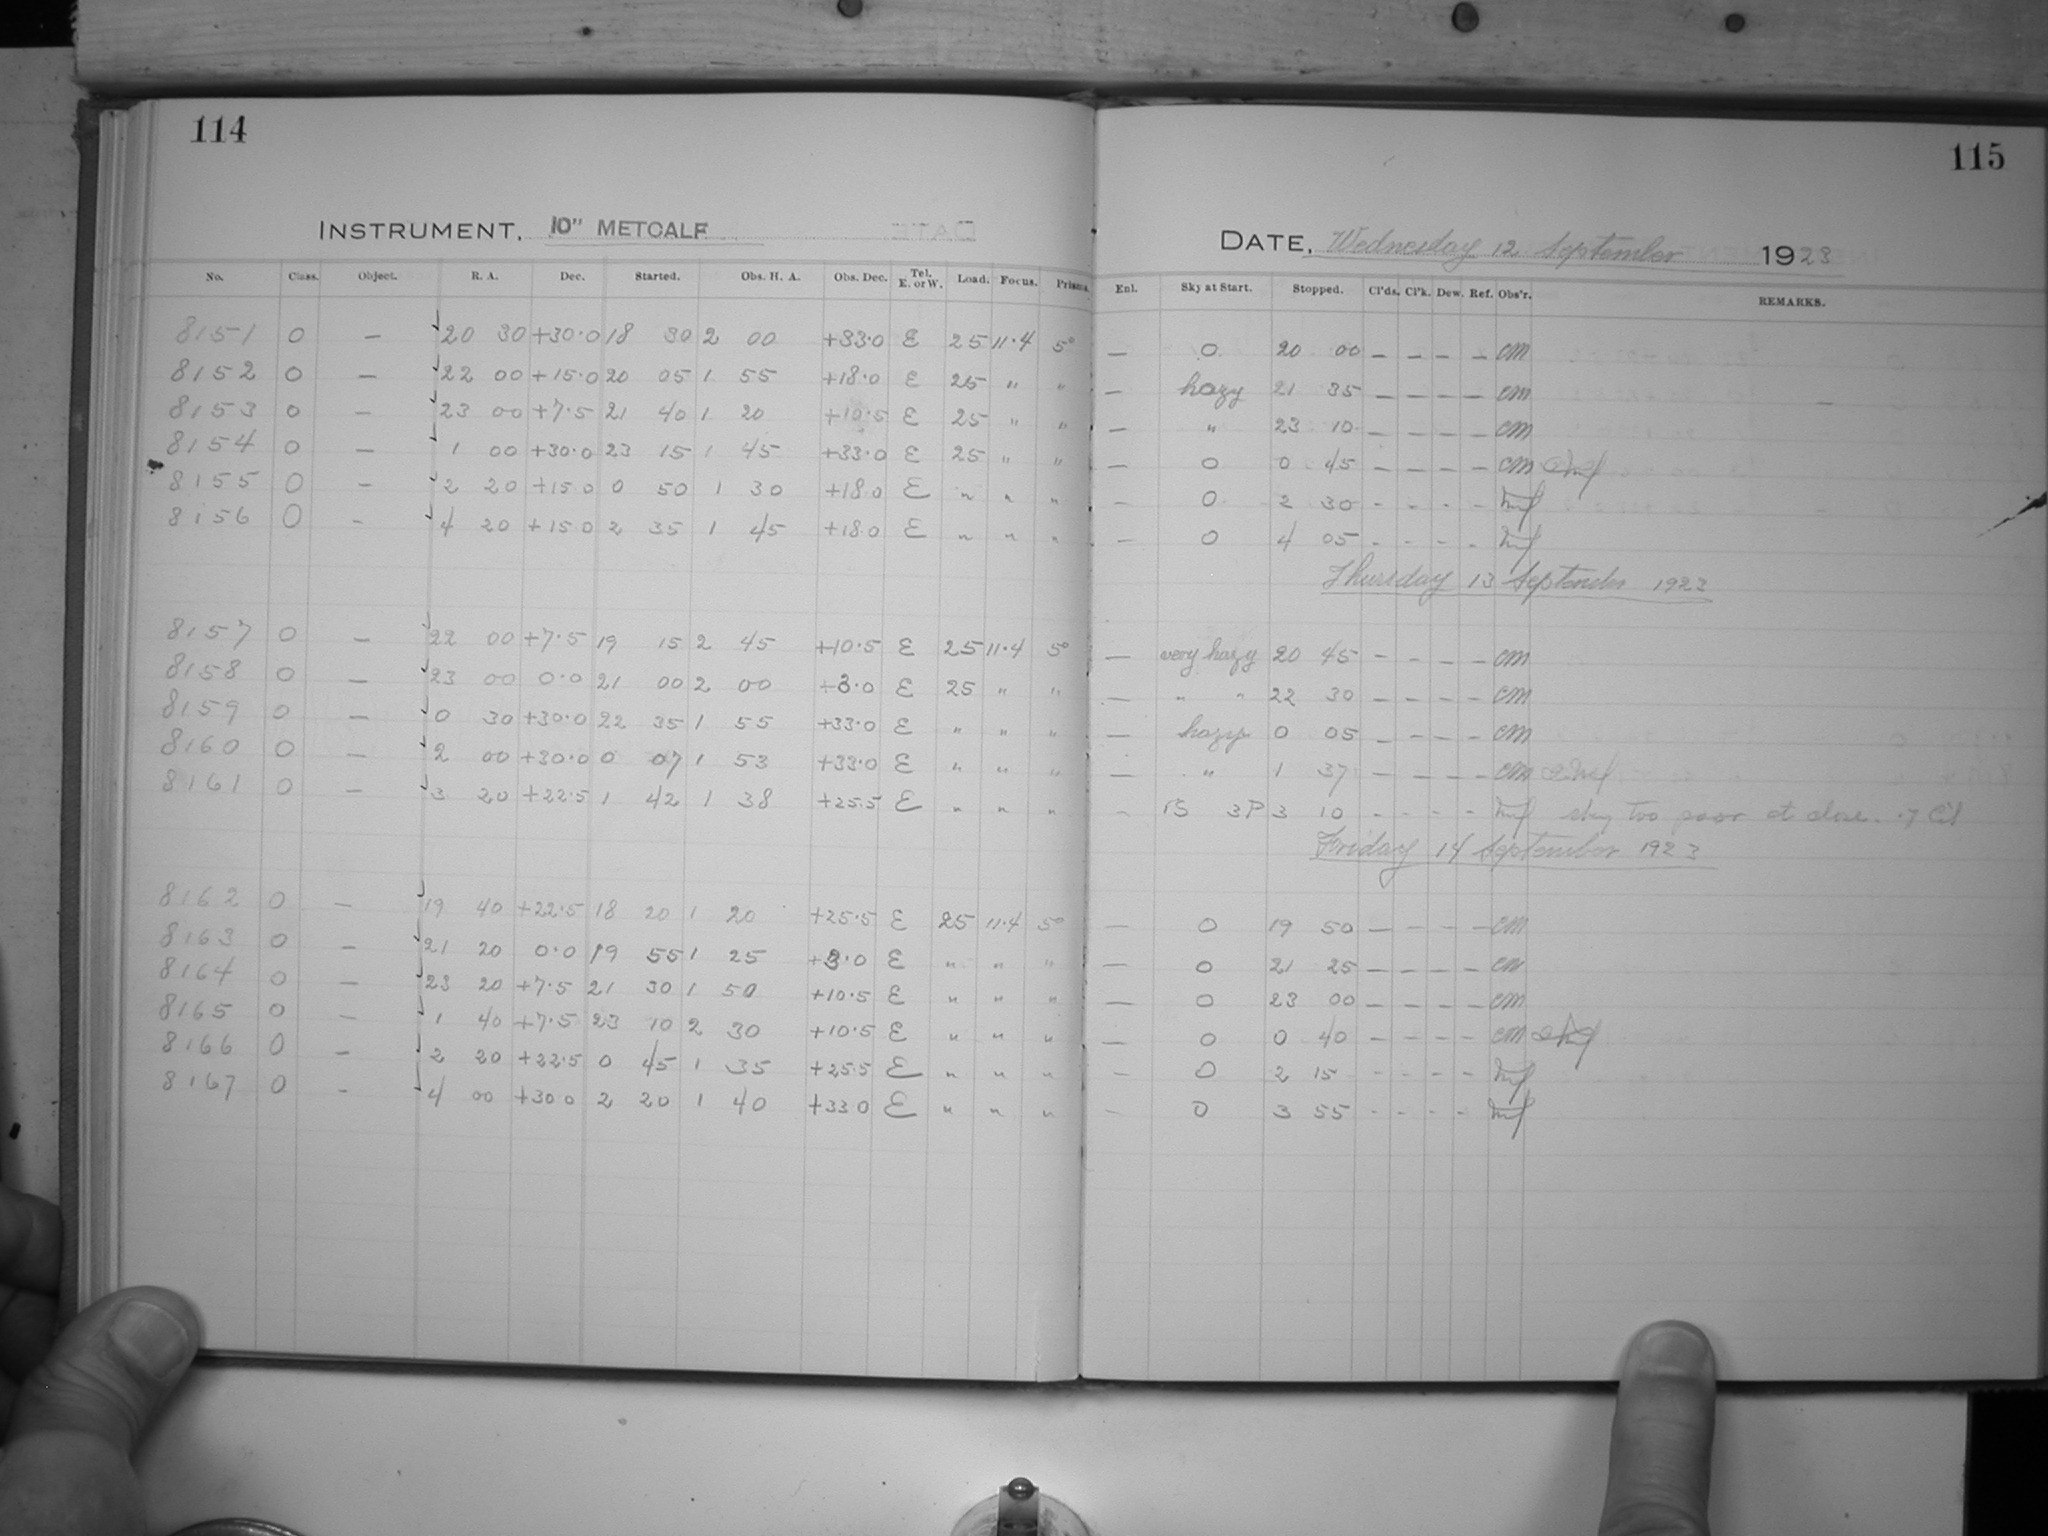 114
115
INSTRUMENT, 10" METCALF
DATE, Wednesday 12 September 1923
No. Class. Object. R. A. Dec. Started. Obs. H. A. Obs. Dec. Tel. E. or W. Load. Focus. Prisms. Enl. Sky at Start. Stopped. Cl'ds. Cl'k. Dew. Ref. Obs'r. REMARKS.
8151 0 — 20 30 +30.0 18 30 2 00 +33.0 E 25 11.4 5° — 0 20 00 — — — — cm
8152 0 — 22 00 +15.0 20 05 1 55 +18.0 E 25 " " — hazy 21 35 — — — — cm
8153 0 — 23 00 +7.5 21 40 1 20 +10.5 E 25 " " — " 23 10 — — — — cm
8154 0 — 1 00 +30.0 23 15 1 45 +33.0 E 25 " " — 0 0 45 — — — — cm
8155 0 — 2 20 +15.0 0 50 1 30 +18.0 E " " " — 0 2 30 - - - -
8156 0 — 4 20 +15.0 2 35 1 45 +18.0 E " " " — 0 4 05 - - - -
Thursday 13 September 1923
8157 0 — 22 00 +7.5 19 15 2 45 +10.5 E 25 11.4 5° — very hazy 20 45 — — — — cm
8158 0 — 23 00 0.0 21 00 2 00 +3.0 E 25 " " — " " 22 30 — — — — cm
8159 0 — 0 30 +30.0 22 35 1 55 +33.0 E " " " — hazy 0 05 — — — — cm
8160 0 — 2 00 +30.0 0 07 1 53 +33.0 E " " " — " 1 37 — — — — cm
8161 0 — 3 20 +22.5 1 42 1 38 +25.5 E " " " - 3P 3 10 - - - - sky too poor at close.
Friday 14 September 1923
8162 0 — 19 40 +22.5 18 20 1 20 +25.5 E 25 11.4 5° — 0 19 50 — — — — cm
8163 0 — 21 20 0.0 19 55 1 25 +3.0 E " " " — 0 21 25 — — — — cm
8164 0 — 23 20 +7.5 21 30 1 50 +10.5 E " " " — 0 23 00 — — — — cm
8165 0 — 1 40 +7.5 23 10 2 30 +10.5 E " " " — 0 0 40 — — — — cm
8166 0 — 2 20 +22.5 0 45 1 35 +25.5 E " " " — 0 2 15 - - - -
8167 0 - 4 00 +30.0 2 20 1 40 +33.0 E " " " - 0 3 55 - - - -